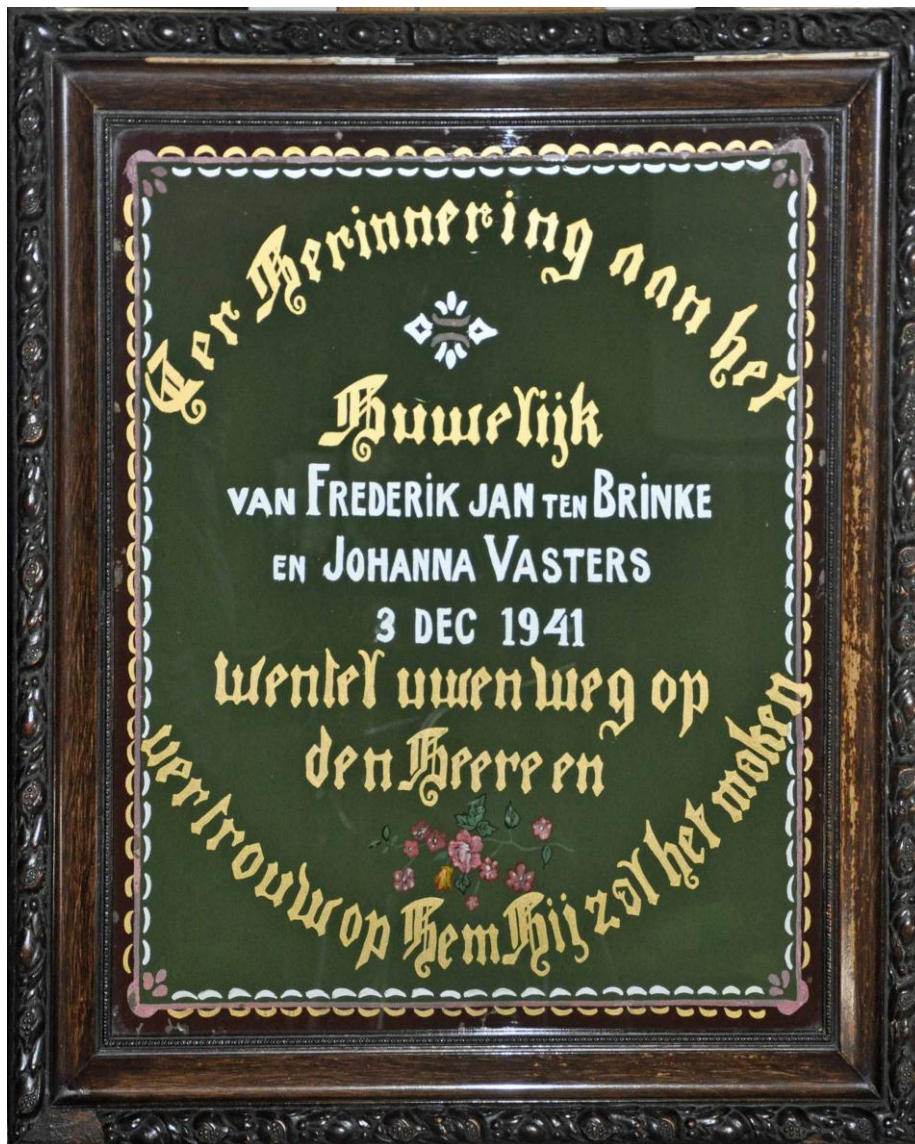 Ter Herinnering aan het
Huwelijk
VAN FREDERiK JAN TEN BRiNKE
EN JOHANNA VASTERS
3 DEC 1941
wentel uwen weg op
den Heere en
vertrouw op Hem Hij zal het maken